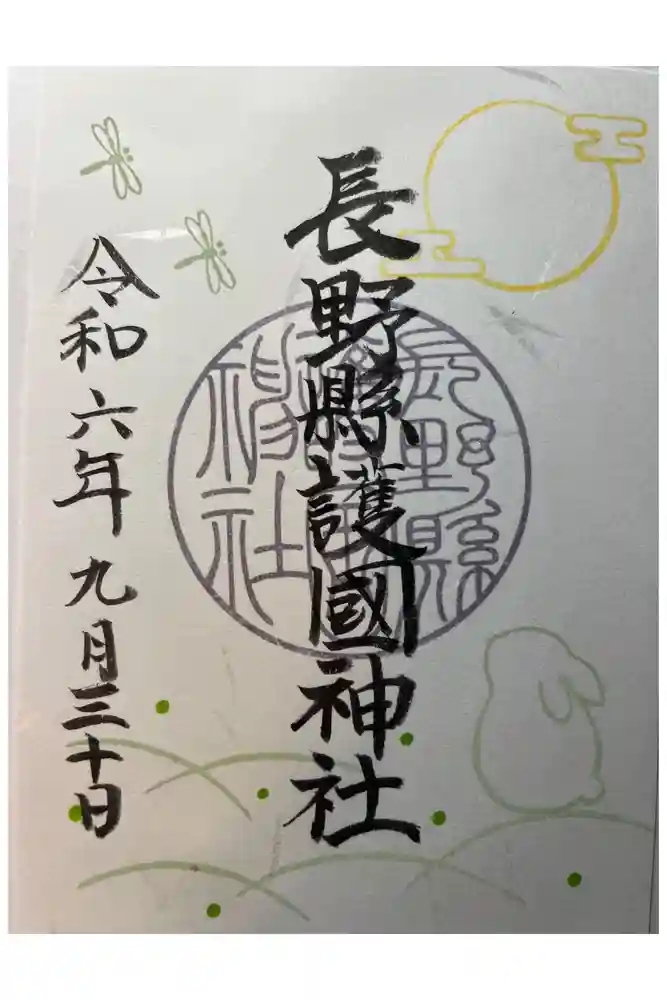 長野縣護國神社
長野縣
神社
令和六年九月三十日